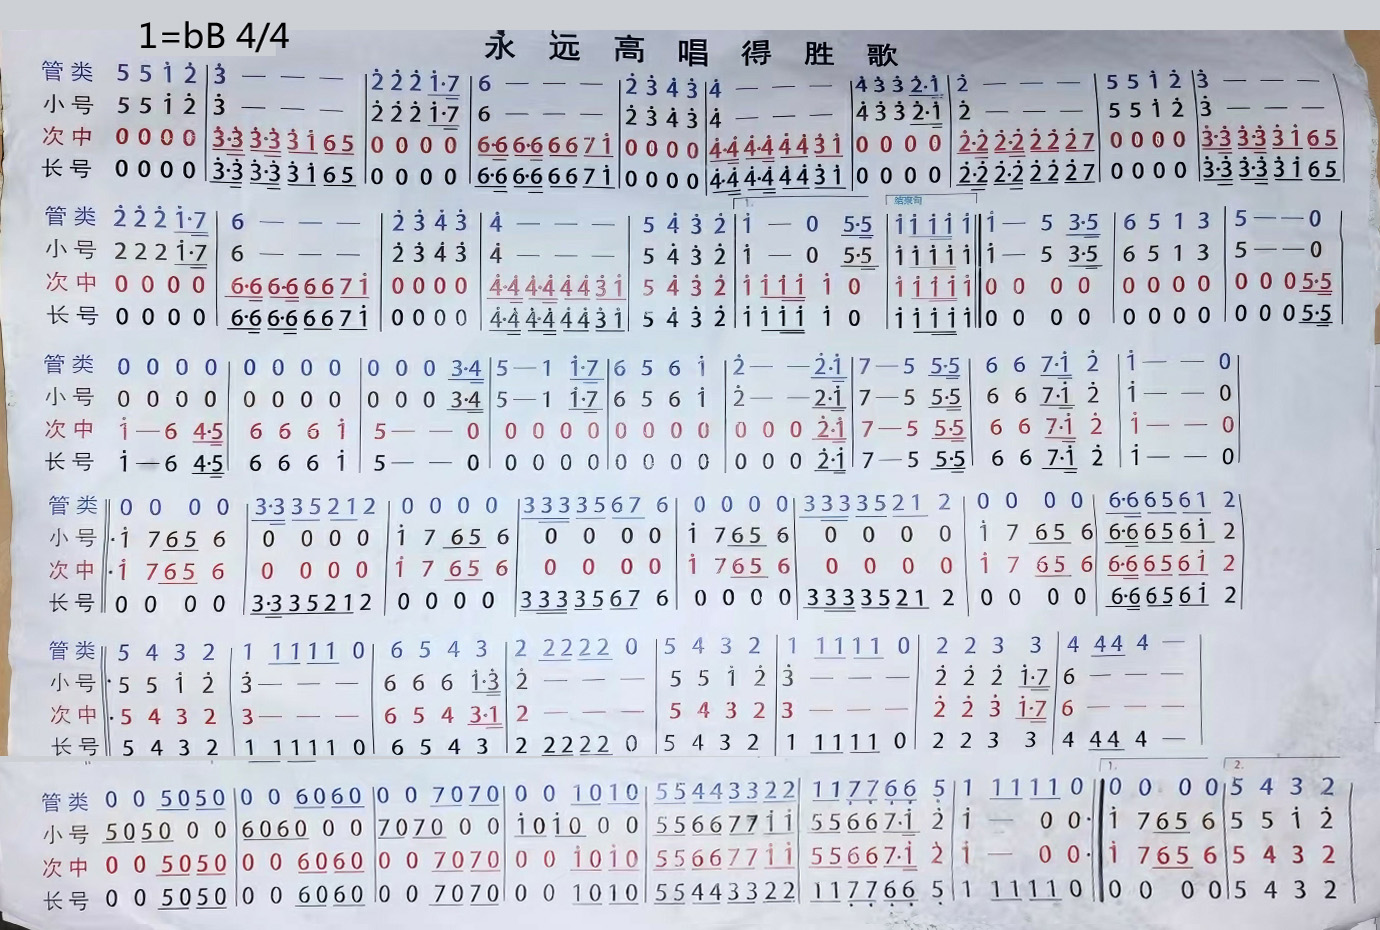 1=bB 4/4
永远高唱得胜歌
管类 5 5 1̇ 2̇ | 3̇ — — — | 2̇ 2̇ 2̇ 1̇·7 | 6 — — — | 2̇ 3̇ 4̇ 3̇ | 4̇ — — — | 4̇ 3̇ 3̇ 2̇·1̇ | 2̇ — — — | 5 5 1̇ 2̇ | 3̇ — — —
小号 5 5 1̇ 2̇ | 3̇ — — — | 2̇ 2̇ 2̇ 1̇·7 | 6 — — — | 2̇ 3̇ 4̇ 3̇ | 4̇ — — — | 4̇ 3̇ 3̇ 2̇·1̇ | 2̇ — — — | 5 5 1̇ 2̇ | 3̇ — — —
次中 0 0 0 0 | 3̇·3̇ 3̇·3̇ 3̇ 1̇ 6 5 | 0 0 0 0 | 6·6 6·6 6 6 7 1̇ | 0 0 0 0 | 4̇·4̇ 4̇·4̇ 4̇ 4̇ 3̇ 1̇ | 0 0 0 0 | 2̇·2̇ 2̇·2̇ 2̇ 2̇ 2̇ 7 | 0 0 0 0 | 3̇·3̇ 3̇·3̇ 3̇ 1̇ 6 5
长号 0 0 0 0 | 3̇·3̇ 3̇·3̇ 3̇ 1̇ 6 5 | 0 0 0 0 | 6·6 6·6 6 6 7 1̇ | 0 0 0 0 | 4̇·4̇ 4̇·4̇ 4̇ 4̇ 3̇ 1̇ | 0 0 0 0 | 2̇·2̇ 2̇·2̇ 2̇ 2̇ 2̇ 7 | 0 0 0 0 | 3̇·3̇ 3̇·3̇ 3̇ 1̇ 6 5
1. 结束句
管类 2̇ 2̇ 2̇ 1̇·7 | 6 — — — | 2̇ 3̇ 4̇ 3̇ | 4̇ — — — | 5 4̇ 3̇ 2̇ | 1̇ — 0 5·5 | 1̇ 1̇ 1̇ 1̇ 1̇ || 1̇ — 5 3·5 | 6 5 1 3 | 5 — — 0
小号 2 2 2 1̇·7 | 6 — — — | 2̇ 3̇ 4̇ 3̇ | 4̇ — — — | 5 4̇ 3̇ 2̇ | 1̇ — 0 5·5 | 1̇ 1̇ 1̇ 1̇ 1̇ || 1̇ — 5 3·5 | 6 5 1 3 | 5 — — 0
次中 0 0 0 0 | 6·6 6·6 6 6 7 1̇ | 0 0 0 0 | 4̇·4̇ 4̇·4̇ 4̇ 4̇ 3̇ 1̇ | 5 4̇ 3̇ 2̇ | 1̇ 1̇ 1̇ 1̇ 1̇ 0 | 1̇ 1̇ 1̇ 1̇ 1̇ || 0 0 0 0 | 0 0 0 0 | 0 0 0 5·5
长号 0 0 0 0 | 6·6 6·6 6 6 7 1̇ | 0 0 0 0 | 4̇·4̇ 4̇·4̇ 4̇ 4̇ 3̇ 1̇ | 5 4̇ 3̇ 2̇ | 1̇ 1̇ 1̇ 1̇ 1̇ 0 | 1̇ 1̇ 1̇ 1̇ 1̇ || 0 0 0 0 | 0 0 0 0 | 0 0 0 5·5
管类 0 0 0 0 | 0 0 0 0 | 0 0 0 3·4 | 5 — 1 1̇·7 | 6 5 6 1̇ | 2̇ — — 2̇·1̇ | 7 — 5 5·5 | 6 6 7·1̇ 2̇ | 1̇ — — 0
小号 0 0 0 0 | 0 0 0 0 | 0 0 0 3·4 | 5 — 1 1̇·7 | 6 5 6 1̇ | 2̇ — — 2̇·1̇ | 7 — 5 5·5 | 6 6 7·1̇ 2̇ | 1̇ — — 0
次中 1̇ — 6 4·5 | 6 6 6 1̇ | 5 — — 0 | 0 0 0 0 | 0 0 0 0 | 0 0 0 2̇·1̇ | 7 — 5 5·5 | 6 6 7·1̇ 2̇ | 1̇ — — 0
长号 1̇ — 6 4·5 | 6 6 6 1̇ | 5 — — 0 | 0 0 0 0 | 0 0 0 0 | 0 0 0 2̇·1̇ | 7 — 5 5·5 | 6 6 7·1̇ 2̇ | 1̇ — — 0
管类 || 0 0 0 0 | 3·3 3 5 2 1 2 | 0 0 0 0 | 3 3 3 3 5 6 7 6 | 0 0 0 0 | 3 3 3 3 5 2 1 2 | 0 0 0 0 | 6·6 6 5 6 1 2
小号 ||: 1̇ 7 6 5 6 | 0 0 0 0 | 1̇ 7 6 5 6 | 0 0 0 0 | 1̇ 7 6 5 6 | 0 0 0 0 | 1̇ 7 6 5 6 | 6·6 6 5 6 1̇ 2
次中 ||: 1̇ 7 6 5 6 | 0 0 0 0 | 1̇ 7 6 5 6 | 0 0 0 0 | 1̇ 7 6 5 6 | 0 0 0 0 | 1̇ 7 6 5 6 | 6·6 6 5 6 1̇ 2
长号 || 0 0 0 0 | 3·3 3 5 2 1 2 | 0 0 0 0 | 3 3 3 3 5 6 7 6 | 0 0 0 0 | 3 3 3 3 5 2 1 2 | 0 0 0 0 | 6·6 6 5 6 1̇ 2
管类 || 5 4 3 2 | 1 1 1 1 1 0 | 6 5 4 3 | 2 2 2 2 2 0 | 5 4 3 2 | 1 1 1 1 1 0 | 2 2 3 3 | 4 4 4 4 —
小号 ||: 5 5 1̇ 2̇ | 3̇ — — — | 6 6 6 1̇·3̇ | 2̇ — — — | 5 5 1̇ 2̇ | 3̇ — — — | 2̇ 2̇ 2̇ 1̇·7 | 6 — — —
次中 ||: 5 4 3 2 | 3 — — — | 6 5 4 3·1 | 2 — — — | 5 4 3 2 | 3 — — — | 2̇ 2̇ 3̇ 1̇·7 | 6 — — —
长号 || 5 4 3 2 | 1 1 1 1 1 0 | 6 5 4 3 | 2 2 2 2 2 0 | 5 4 3 2 | 1 1 1 1 1 0 | 2 2 3 3 | 4 4 4 4 —
1. 2.
管类 0 0 5050 | 0 0 6060 | 0 0 7070 | 0 0 1010 | 55443322 | 117̣7̣6̣6̣ 5̣ | 1 1 1 1 1 0 || 0 0 0 0 | 5 4 3 2
小号 5050 0 0 | 6060 0 0 | 7070 0 0 | 1̇01̇0 0 0 | 5566771̇1̇ | 55667·1̇ 2̇ | 1̇ — 0 0 :|| 1̇ 7 6 5 6 | 5 5 1̇ 2̇
次中 0 0 5050 | 0 0 6060 | 0 0 7070 | 0 0 1̇01̇0 | 5566771̇1̇ | 55667·1̇ 2̇ | 1̇ — 0 0 :|| 1̇ 7 6 5 6 | 5 4 3 2
长号 0 0 5050 | 0 0 6060 | 0 0 7070 | 0 0 1010 | 55443322 | 117̣7̣6̣6̣ 5̣ | 1 1 1 1 1 0 || 0 0 0 0 | 5 4 3 2